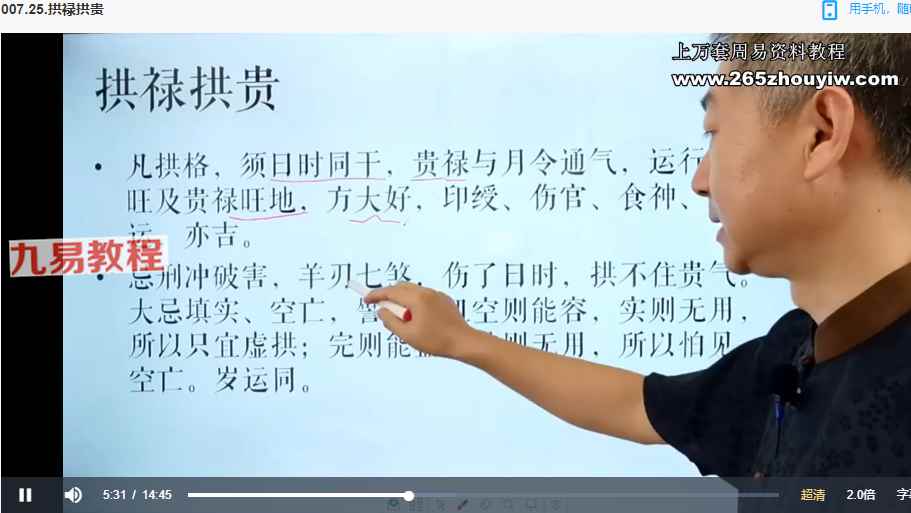 007.25.拱禄拱贵
用手机，随
上万套周易资料教程
www.265zhouyiw.com
拱禄拱贵
• 凡拱格，须日时同干，贵禄与月令通气，运行
旺及贵禄旺地，方大好，印绶、伤官、食神、
运，亦吉。
九易教程
• 忌刑冲破害，羊刃七煞，伤了日时，拱不住贵气。
大忌填实、空亡，空则能容，实则无用，
所以只宜虚拱；完则能 则无用，所以怕见
空亡。岁运同。
5:31 / 14:45
超清
2.0倍
字